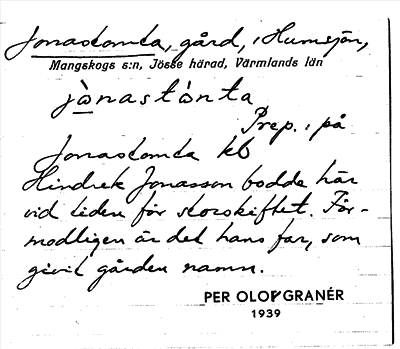 Jonastomta, gård, i Humsjön,
Mangskogs s:n, Jösse härad, Värmlands län
jònastònta
Prep. i på
Jonastomta kb
Hindrek Jonasson bodde här
vid tiden för storskiftet. För-
modligen är det hans far, som
givit gården namn.
PER OLOF GRANÉR
1939